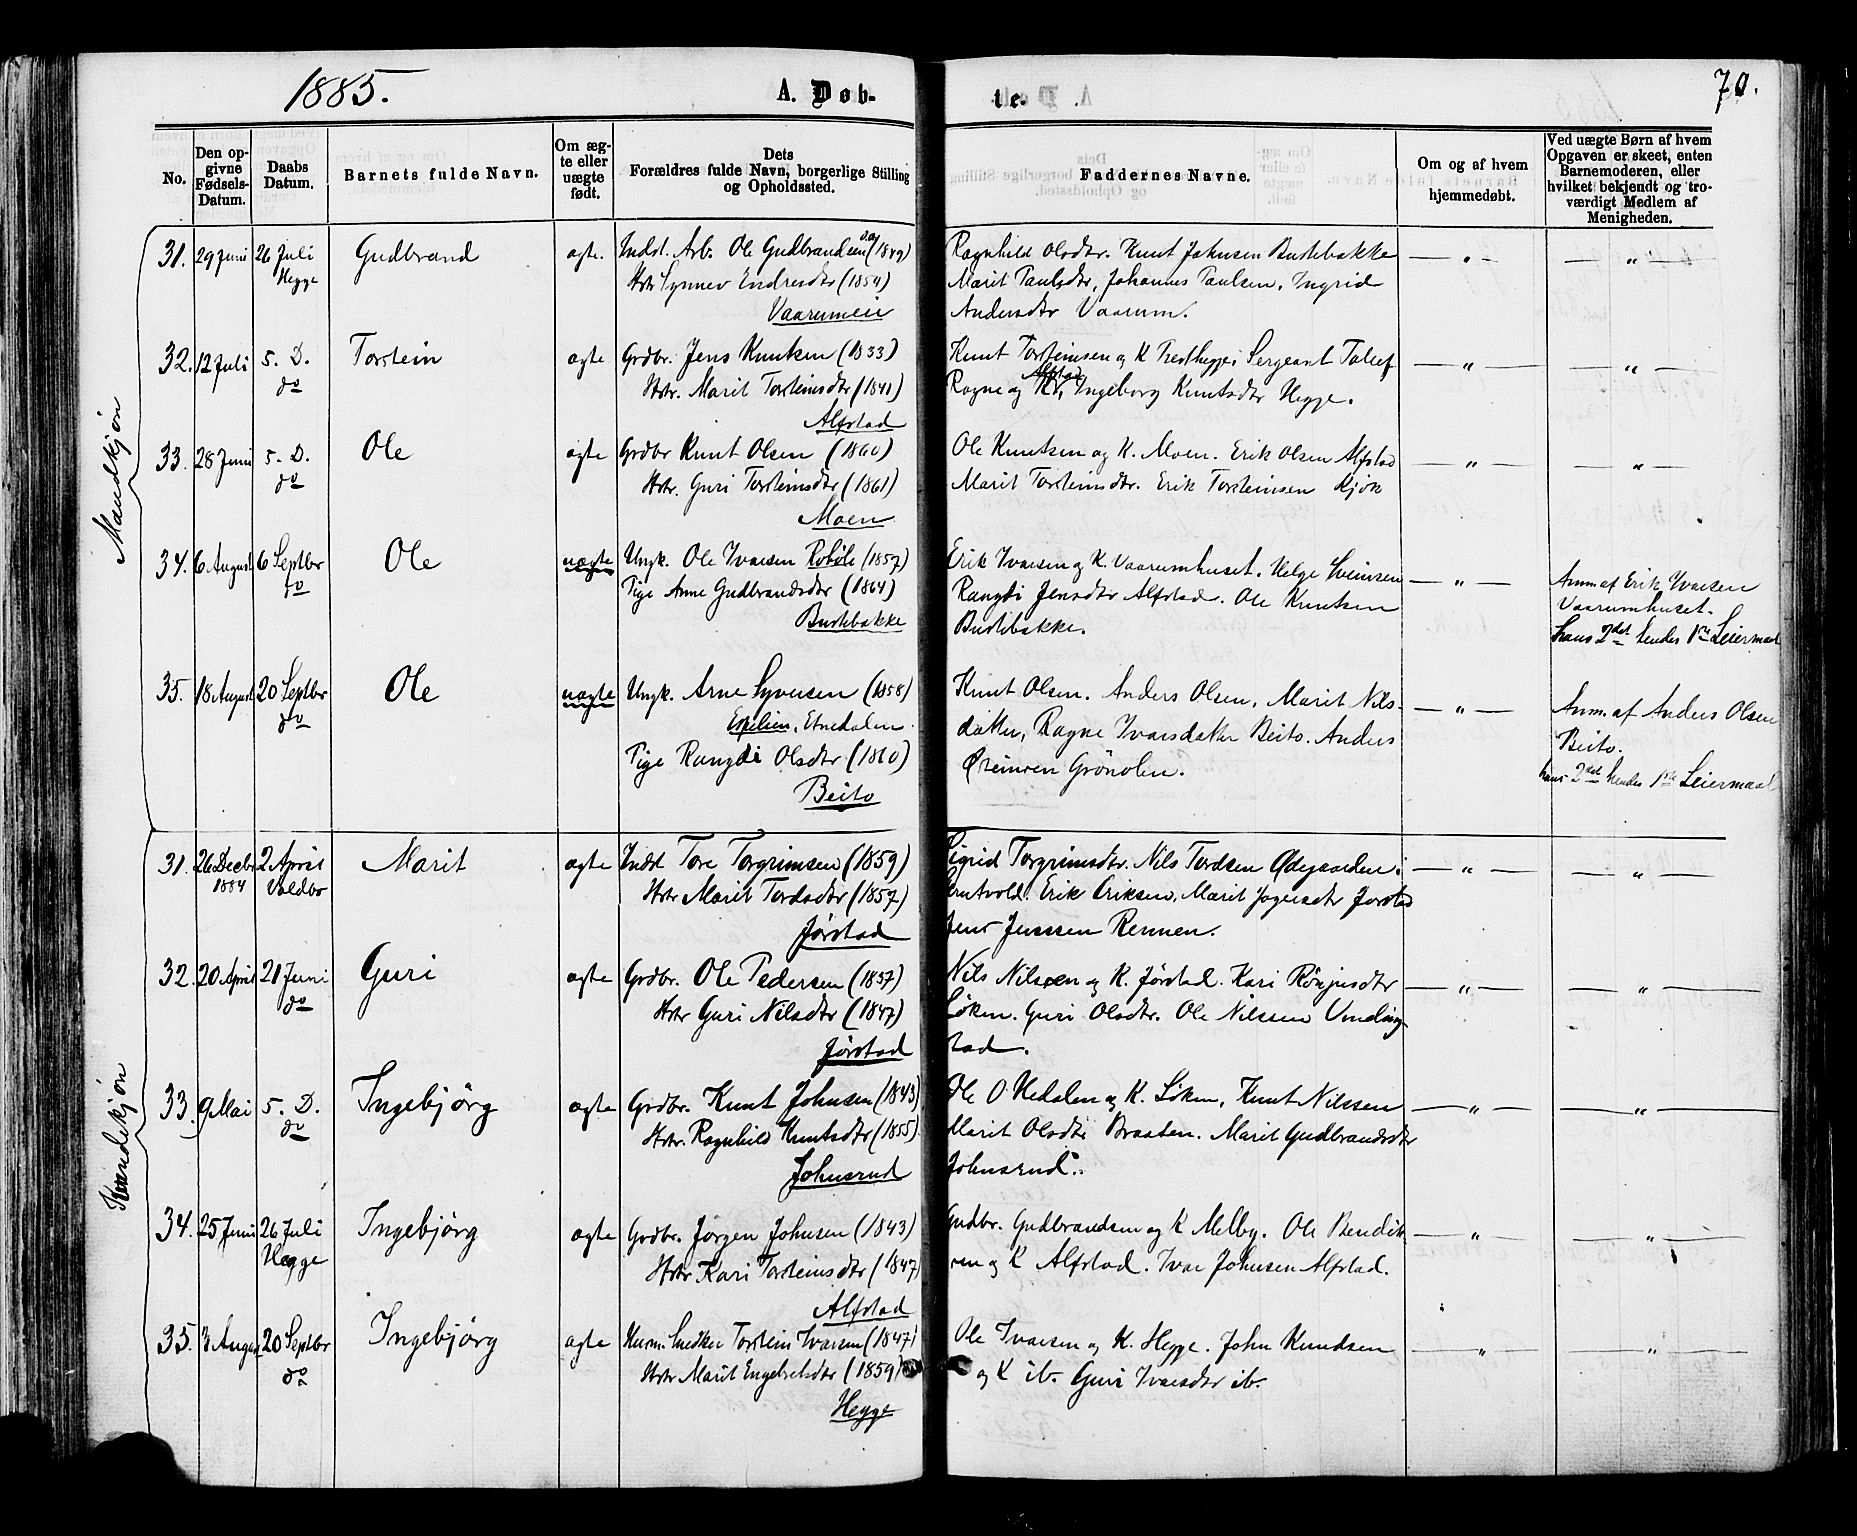 1885.
A. Døb-
te.
70.
No.
Den op-
givne
Fødsels-
Datum.
Daabs
Datum.
Barnets fulde Navn.
Om æg-
te eller
uægte
født.
Dets
Forældres fulde Navn, borgerlige Stilling
og Opholdssted.
Faddernes Navne.
Om og af hvem
hjemmedøbt.
Ved uægte Børn af hvem
Opgaven er skeet, enten
Barnemoderen, eller
hvilket bekjendt og tro-
værdigt Medlem af
Menigheden.
Mandkjøn
31. 29 Juni 26 Juli Gudbrand ægte. Indst. Arb. Ole Gudbrandsen (1849) Ragnhild Olsdtr. Knut Johnsen Bustebakke — " —
Hegge Hstr Synnev Endresdtr (1854) Marit Paulsdtr, Johannes Paulsen, Ingrid
Vaarumeie Andersdtr Vaarum.
32. 12 Juli 5. D. Torstein ægte Grdbr. Jens Knutsen (1833) Knut Torsteinsen og K Sergeant Tollef — " — — " —
do Hstr. Marit Torsteinsdtr (1841) Ragne og Alfstad Ingeborg Knutsdtr Hegge.
Alfstad
33. 28 Juni 5. D. Ole ægte Grdbr Knut Olsen (1860) Ole Knutsen og K. Moen. Erik Olsen Alfstad — " — — " —
do Hstr. Guri Torsteinsdtr (1861) Marit Torsteinsdtr. Erik Torsteinsen Kjøk
Moen
34. 6 August 6 Septbr Ole uægte Ungk. Ole Ivarsen Robøle (1857) Erik Ivarsen og K. Vaarumhuset. Helge Sveinsen — " — Anm. af Erik Ivarsen
do Pige Anne Gudbrandsdtr (1864) Rangdi Jensdtr Alfstad. Ole Knutsen Vaarumhuset.
Bustebakke Bustebakke. hans 2det hendes 1ste Leiermaal
35. 18 August 20 Septbr Ole uægte Ungk. Arne Syversen (1858) Knut Olsen. Anders Olsen, Marit Nils- — " — Anm. af Anders Olsen
do Espelien, Etnedalen datter, Ragne Ivarsdatter Beito. Anders Beito.
Pige Rangdi Olsdtr (1860) Grønolen. hans 2det hendes 1ste Leiermaal
Beito
Kvindekjøn
31. 26 Decbr 2 April Marit ægte Indst Tore Torgrimsen (1859) Sigrid Torgrimsdtr. Nils Tordsen Ødegaarden i — " — — " —
1884 Voldbr Hstr Marit Tordsdtr (1857) Erik Eriksen, Marit Jørstad
Jørstad Jens Jensen Rennen.
32. 20 April 21 Juni Guri ægte Grdbr. Ole Pedersen (1837) Nils Nilsen og K. Jørstad. Kari — " — — " —
do Hstr Guri Nilsdtr (1847) Løken. Guri Olsdtr. Ole Nilssen
Jørstad stad.
33. 9 Mai 5. D. Ingebjörg ægte Grdbr. Knut Johnsen (1843) Ole O Hedalen og K. Löken, Knut Nilssen — " — — " —
do Hstr. Ragnhild Knutsdtr (1855) Marit Olsdtr Braaten. Marit Gudbrandsdtr
Johnsrud Johnsrud.
34. 25 Juni 26 Juli Ingebjörg ægte Grdbr. Jørgen Johnsen (1843) Gudbr. Gudbrandsen og K Melby. Ole Bendik- — " — — " —
Hegge Hstr Kari Torsteinsdtr (1847) sen og K Alfstad. Ivar Johnsen Alfstad.
Alfstad
35. 3 August 20 Septbr Ingebjörg ægte Husm. Snedker Torstein Ivarsen (1847) Ole Ivarsen og K. Hegge. John Knudsen — " — — " —
do Hstr Marit Engebretsdtr (1859) og K ib. Guri Ivarsdtr ib.
Hegge